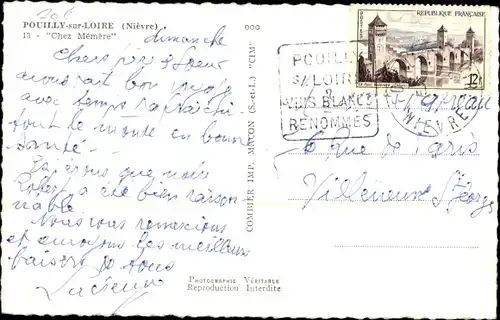 20f
POUILLY-sur-LOIRE (Nièvre)
13 - "Chez Mémère"
dimanche
Chers père & Soeur
avons fait bon voyage
avec temps rafraichi
tout le monde en bonne
santé.
J'espérons que notre
Robert a été bien raison
nable.
Nous vous remercions
et envoyons les meilleurs
baisers de tous
Lucienne
COMBIER IMP. MACON (S.-et-L.) "CIM"
PHOTOGRAPHIE VÉRITABLE
Reproduction Interdite
REPUBLIQUE FRANÇAISE
POSTES
12F
POUILLY
S/ LOIRE
VINS BLANCS
RENOMMES
NIEVRE
6 Rue de Paris
Villeneuve St
Georges